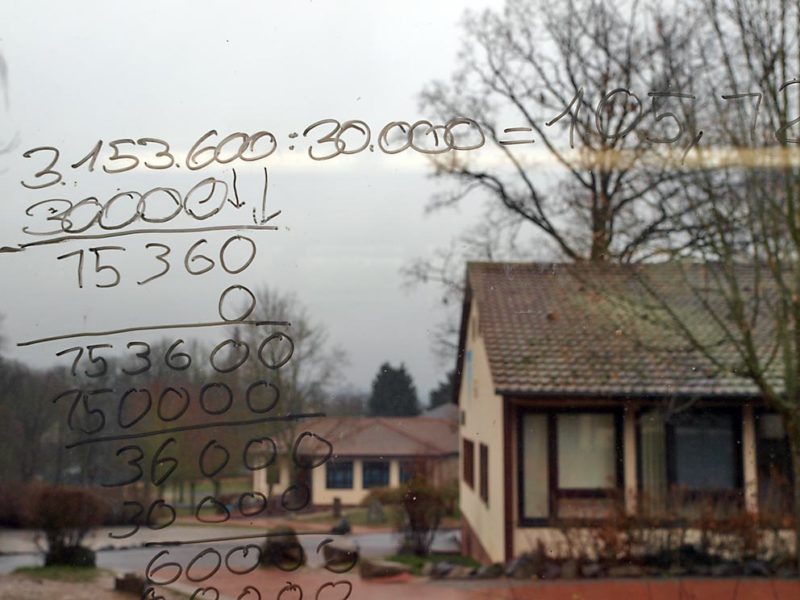 3.153.600:30.000=105,12
30000
15360
0
153600
150000
36000
30000
60000